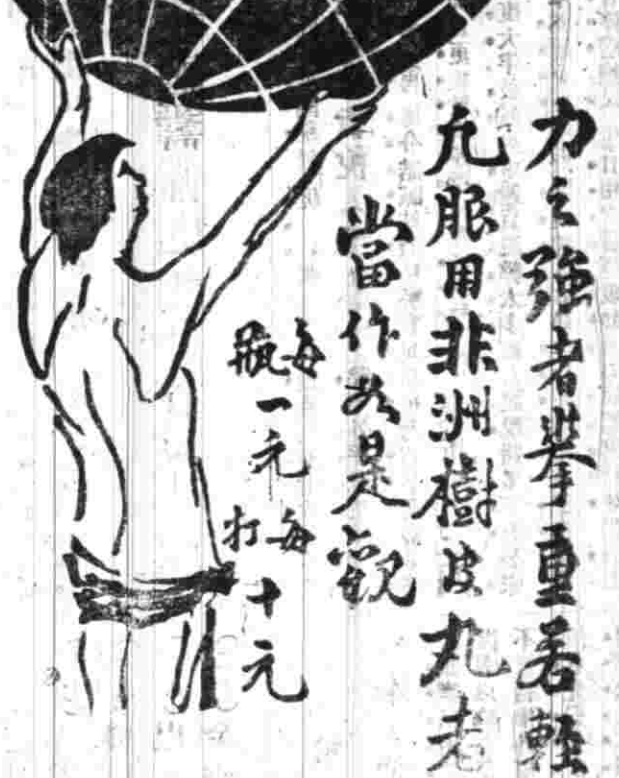 力之強者舉重若輕
凡服用非洲樹皮丸老
當作如是觀
每瓶一元
每打十元